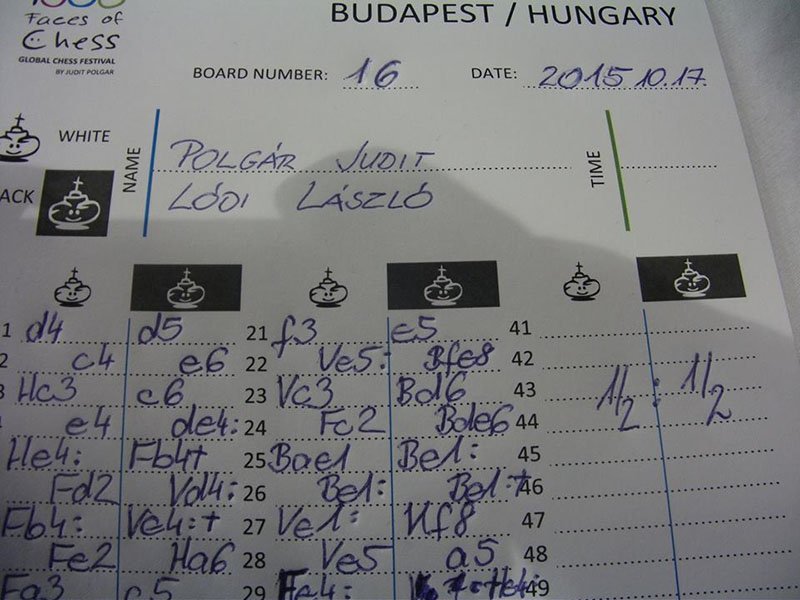 Faces of
Chess
GLOBAL CHESS FESTIVAL
BY JUDIT POLGAR
BUDAPEST / HUNGARY
BOARD NUMBER: 16 DATE: 2015 10.17.
WHITE NAME POLGÁR JUDIT TIME
ACK LÓDI LÁSZLÓ
1 d4 d5 21 f3 e5 41
2 c4 e6 22 Ve5: Bfe8 42
3 Hc3 c6 23 Vc3 Bd6 43 1/2 : 1/2
e4 de4: 24 Fc2 Bde6 44
He4: Fb4+ 25 Bae1 Be1: 45
Fd2 Vd4: 26 Be1: Be1:+ 46
Fb4: Ve4:+ 27 Ve1: Hf8 47
Fe2 Ha6 28 Ve5 a5 48
Fa3 c5 29 Fe4: He4: 49